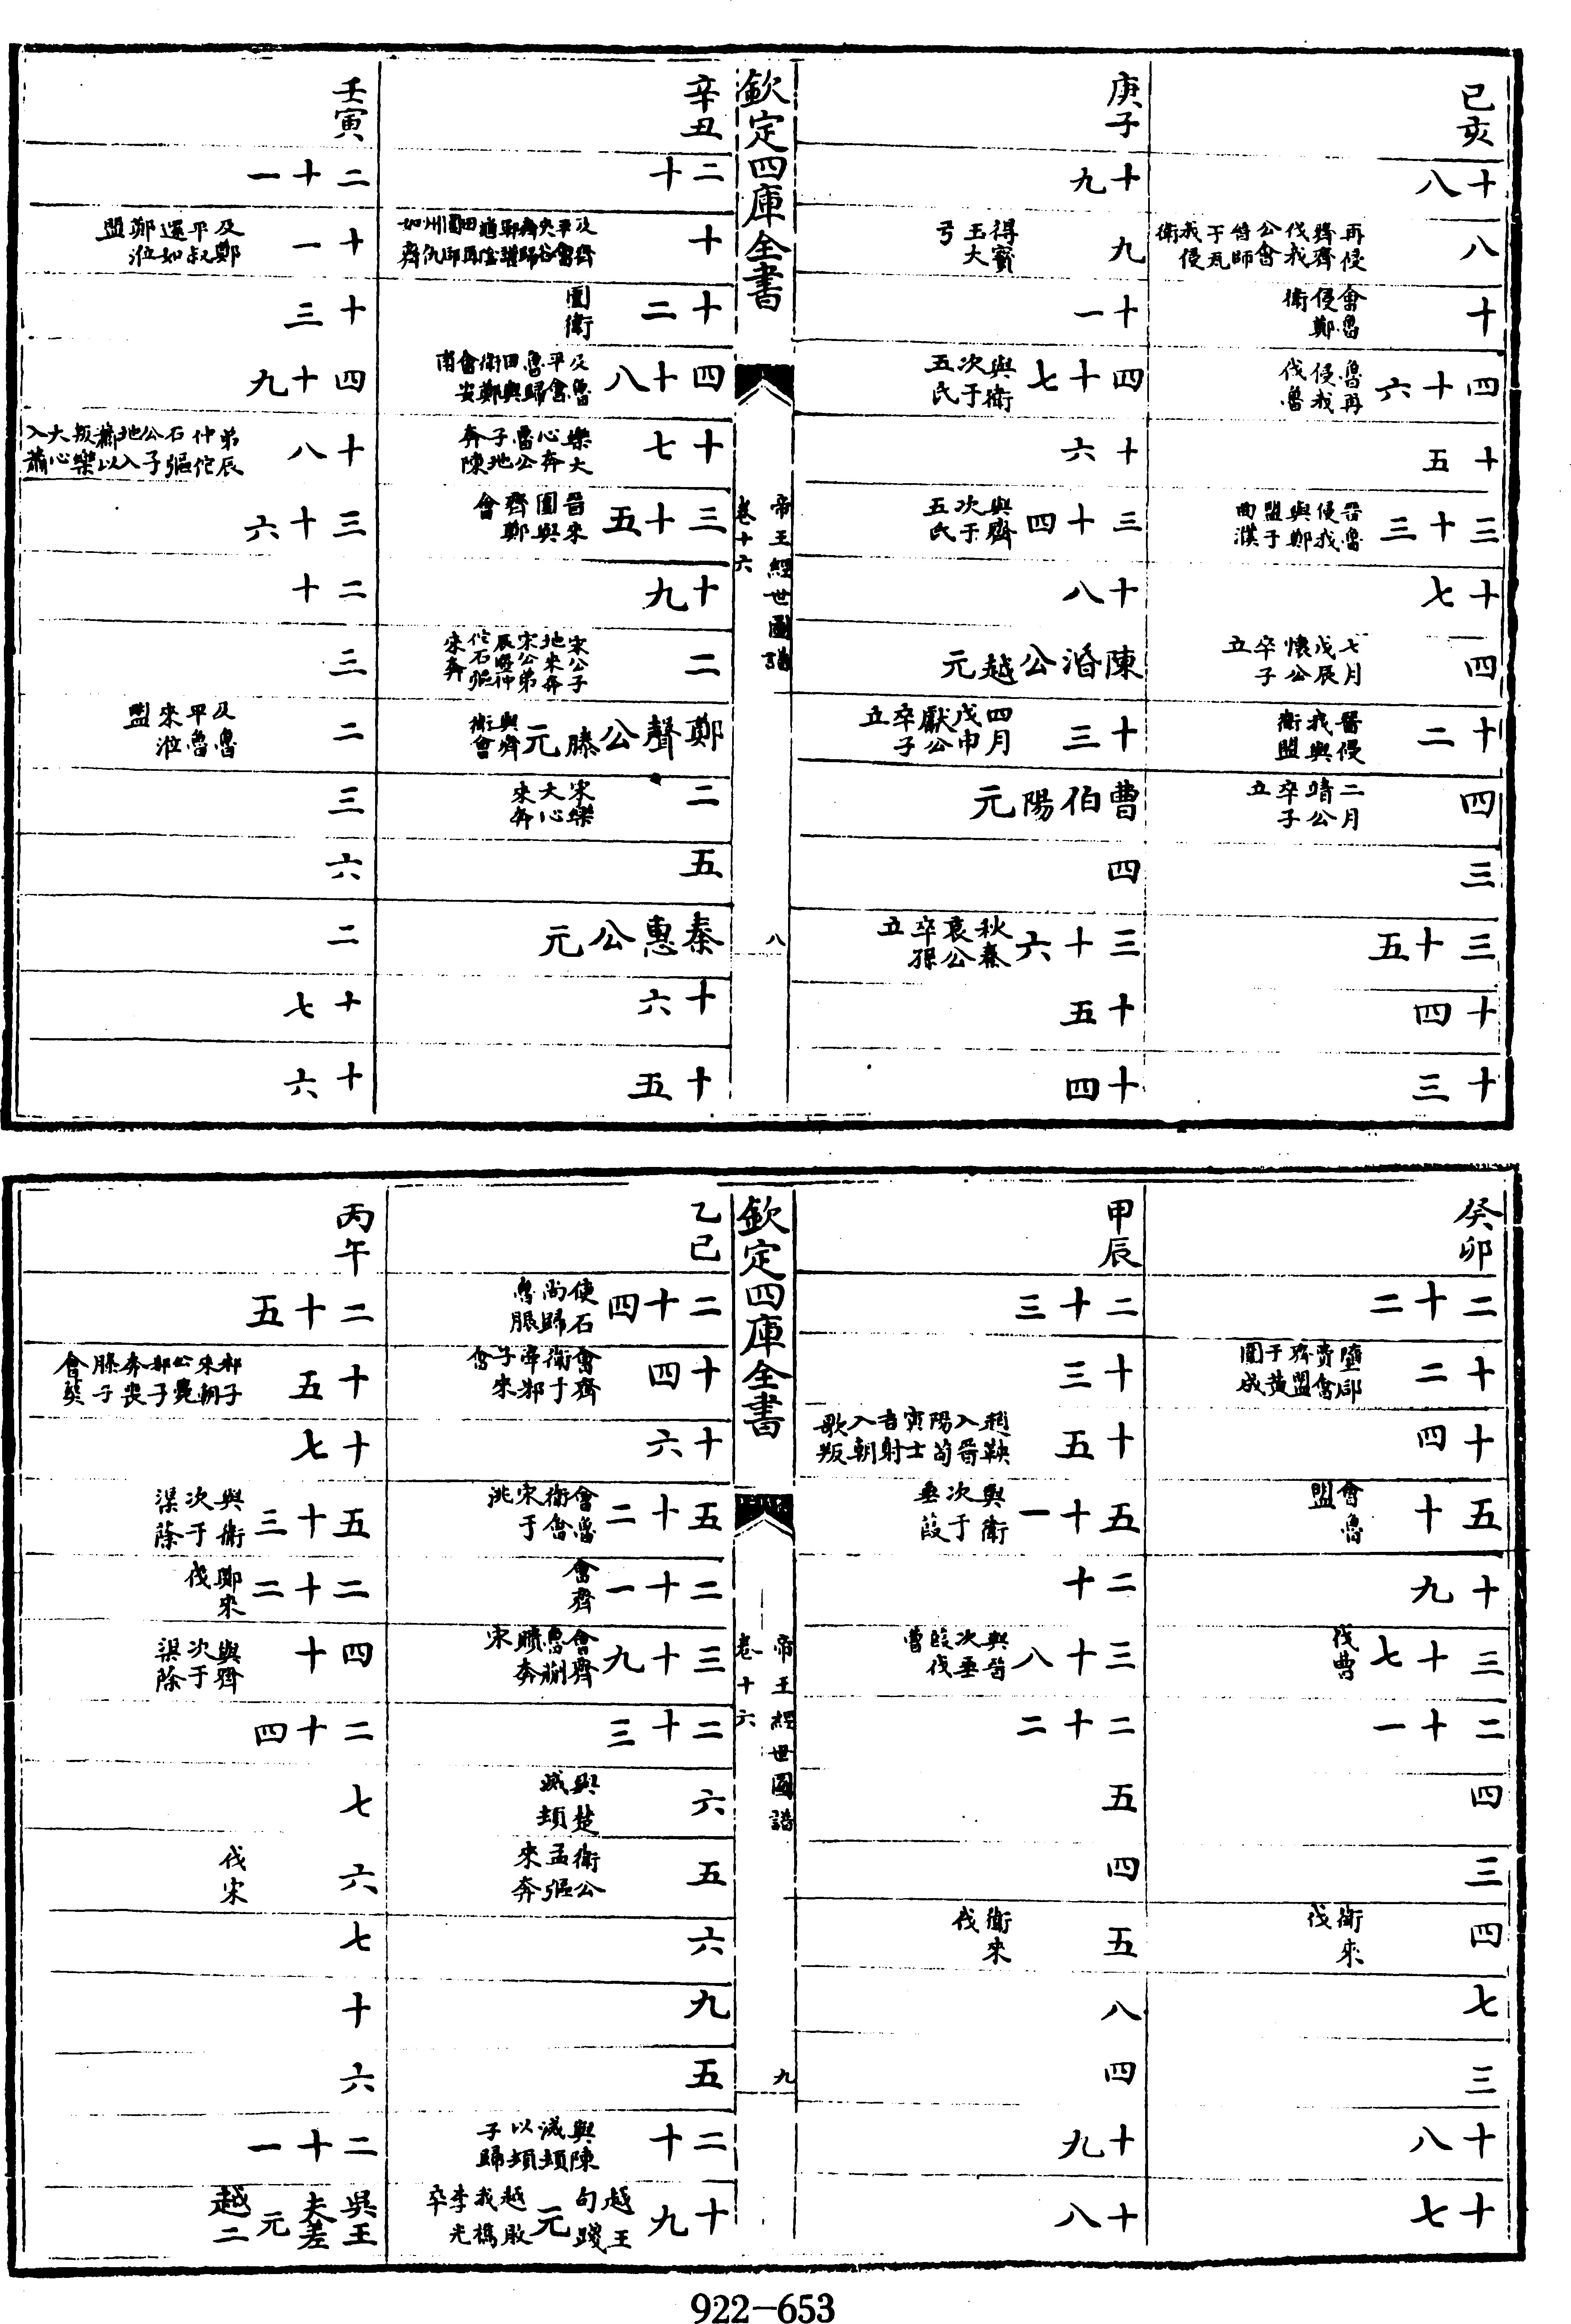 己亥
十八
八 再侵齊齊伐我公會晉師于瓦我侵衛
十 會魯侵鄭衛
四十六 魯再侵我伐魯
十五
三十三 晉魯侵我與鄭盟于曲濮
十七
四 七月戊辰懷公卒子立
十二 晉侵我與衛盟
四 二月靖公卒子立
三
三十五
十四
十三
庚子
十九
九 得寶玉大弓
十一
四十七 與衛次于五氏
十六
三十四 與齊次于五氏
十八
陳湣公越元
十三 四月戊申獻公卒子立
曹伯陽元
四
三十六 秋秦哀公卒孫立
十五
十四
欽定四庫全書
帝王經世圖譜
卷十六
八
辛丑
二十
十 及齊平會夾谷齊歸鄆讙龜陰田再圍郈州仇如齊
十二 圍衛
四十八 及魯平會魯歸田與衛鄭會安甫
十七 樂大心奔魯公子地奔陳
三十五 晉來圍與齊鄭會
十九
二 宋公子地來奔宋公弟辰暨仲佗石彄來奔
鄭聲公勝元 與齊衛會
二 宋樂大心來奔
五
秦惠公元
十六
十五
壬寅
二十一
十一 及鄭平叔還如鄭涖盟
十三
四十九
十八 弟辰仲佗石彄公子地入蕭以叛樂大心入蕭
三十六
二十
三
二 及魯平魯來涖盟
三
六
二
十七
十六
癸卯
二十二
十二 墮郈費會齊盟于黃圍成
十四
五十 會魯盟
十九
三十七 伐曹
二十一
四
三
四 衛來伐
七
三
十八
十七
甲辰
二十三
十三
十五 趙鞅入晉陽荀寅士吉射入朝歌叛
五十一 與衛次于垂葭
二十
三十八 與晉次垂葭伐曹
二十二
五
四
五 衛來伐
八
四
十九
十八
欽定四庫全書
帝王經世圖譜
卷十六
九
乙巳
二十四 使石尚歸魯脤
十四 會齊衛于牽邾子來會
十六
五十二 會魯衛會宋于洮
二十一 會齊
三十九 會齊魯蒯聵奔宋
二十三
六 與楚滅頓
五 衛公孟彄來奔
六
九
五
二十 與陳滅頓以頓子歸
十九 越王句踐元 越敗我檇李光卒
丙午
二十五
十五 邾子來朝公薨邾子奔喪滕子會葬
十七
五十三 與衛次于渠蒢
二十二 鄭來伐
四十 與齊次于渠蒢
二十四
七
六 伐宋
七
十
六
二十一
吳王夫差元 越二
922-653